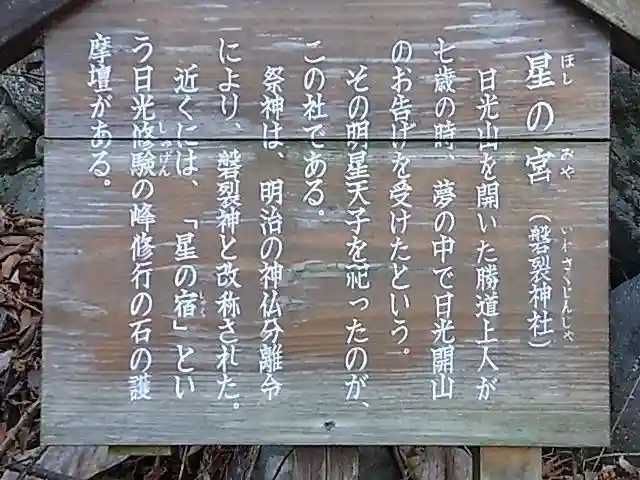 星の宮（磐裂神社）
ほし みや いわさくじんじゃ
日光山を開いた勝道上人が
七歳の時、夢の中で日光開山
のお告げを受けたという。
その明星天子を祀ったのが、
この社である。
祭神は、明治の神仏分離令
により、磐裂神と改称された。
近くには、「星の宿」とい
しゅく
う日光修験の峰修行の石の護
しゅげん
摩壇がある。